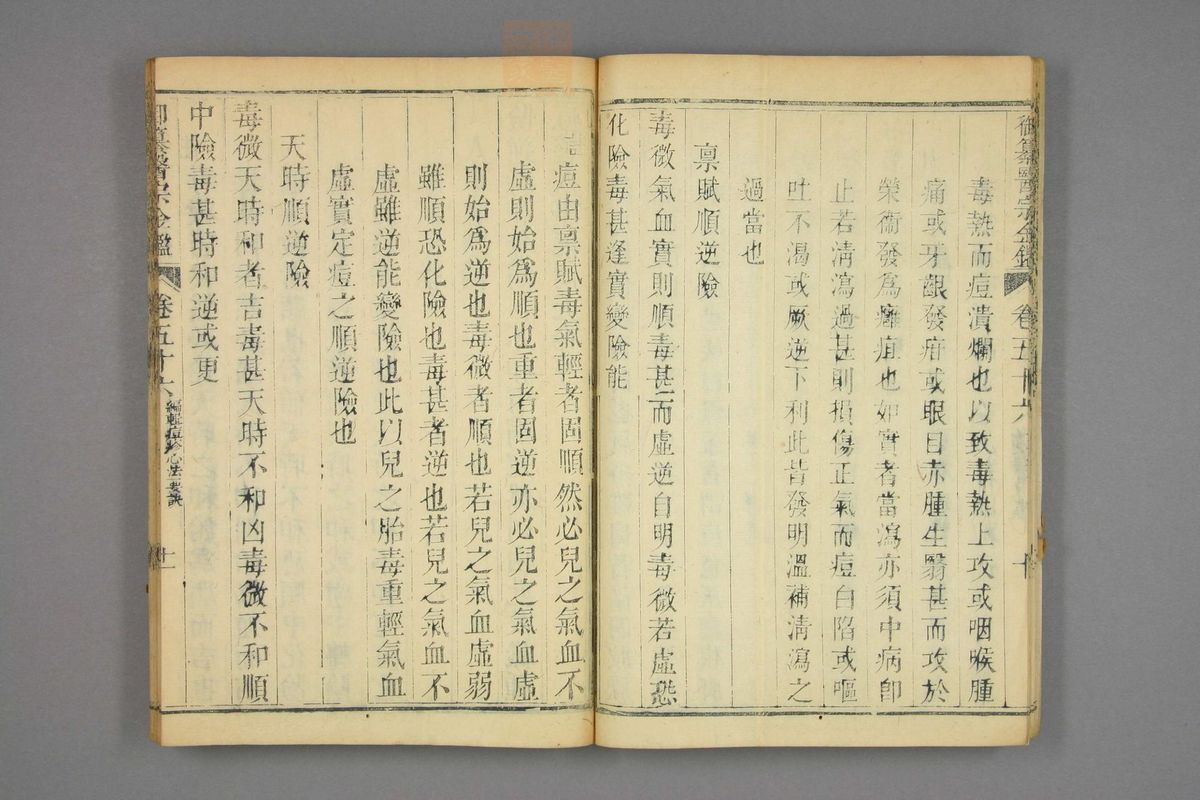 御纂醫宗金鑑 卷五十六 十
毒熱而痘潰爛也以致毒熱上攻或咽喉腫
痛或牙齦發疳或眼目赤腫生翳甚而攻於
榮衛發爲癰疽也如實者當瀉亦須中病卽
止若清瀉過甚則損傷正氣而痘白陷或嘔
吐不渴或厥逆下利此皆發明溫補清瀉之
過當也
禀賦順逆險
毒微氣血實則順毒甚而虛逆自明毒微若虛恐
化險毒甚逢實變險能
痘由禀賦毒氣輕者固順然必兒之氣血不
虛則始爲順也重者固逆亦必兒之氣血虛
則始爲逆也毒微者順也若兒之氣血虛弱
雖順恐化險也毒甚者逆也若兒之氣血不
虛雖逆能變險也此以兒之胎毒重輕氣血
虛實定痘之順逆險也
天時順逆險
毒微天時和者吉毒甚天時不和凶毒微不和順
中險毒甚時和逆或更
御纂醫宗金鑑 卷五十六 編輯痘疹心法要訣 十一